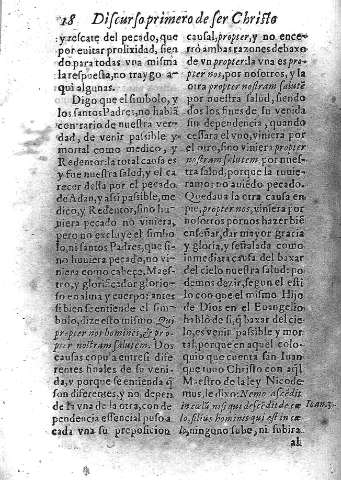 18 Discurso primero de ser Christo
y rescate del pecado, que
por euitar prolixidad, sien
do para todas vna misma
la respuesta, no traygo a-
qui algunas.
Digo que el simbolo, y
los santos Padres, no hablã
contrario de nuestra ver-
dad, de venir passible y
mortal como medico, y
Redentor: la total causa es
y fue nuestra salud, y el ca
recer dessa por el pecado
de Adan, y assi passible, me
dico, y Redentor, sino hu
uiera pecado no viniera,
pero no excluye el simbo
lo, ni santos Padres, que si-
no huuiera pecado, no vi-
niera como cabeça, Maes-
tro, y glorificador glorio-
so en alma y cuerpo: antes
si bien se entiende el sim-
bolo, dize esto mismo. Qui
propter nos homines, & pro-
pter nostram salutem. Dos
causas copu a entre si dife
rentes finales de su veni-
da, y porque se entienda q̃
son diferentes, y no depen
de la vna de la otra, con de
pendencia essencial puso a
cada vna su preposicion
causal, propter, y no ence-
rrò ambas razones debaxo
de vn propter: la vna es pro-
pter nos, por nosotros, y la
otra propter nostram salutẽ
por nuestra salud, siendo
dos los fines de su venida
sin dependencia, quando
cessara el vno, viniera por
el otro, sino viniera propter
nostram salutem por nues-
tra salud, porque la tuuie-
ramos, no auiendo pecado.
Quedaua la otra causa en
pie, propter nos, viniera por
nosotros por nos hazer biẽ
enseñar, dar mayor gracia
y gloria, y señalada como
inmediata causa del baxar
del cielo nuestra salud: po
demos dezir, segun el esti
lo con que el mismo Hijo
de Dios en el Euangelio
hablò de sì, q̃ baxar del cie-
lo, es venir passible y mor
tal, porque en aquel colo-
quio que cuenta san Iuan
que tuuo Christo con aql̃
Maestro de la ley Nicode-
mus, le dixo: Nemo ascẽdit
in cælũ nisi qui descẽdit de cæ
lo, filius hominis qui est in cæ
lo, ninguno sube, ni subira
Ioan. 3.
al